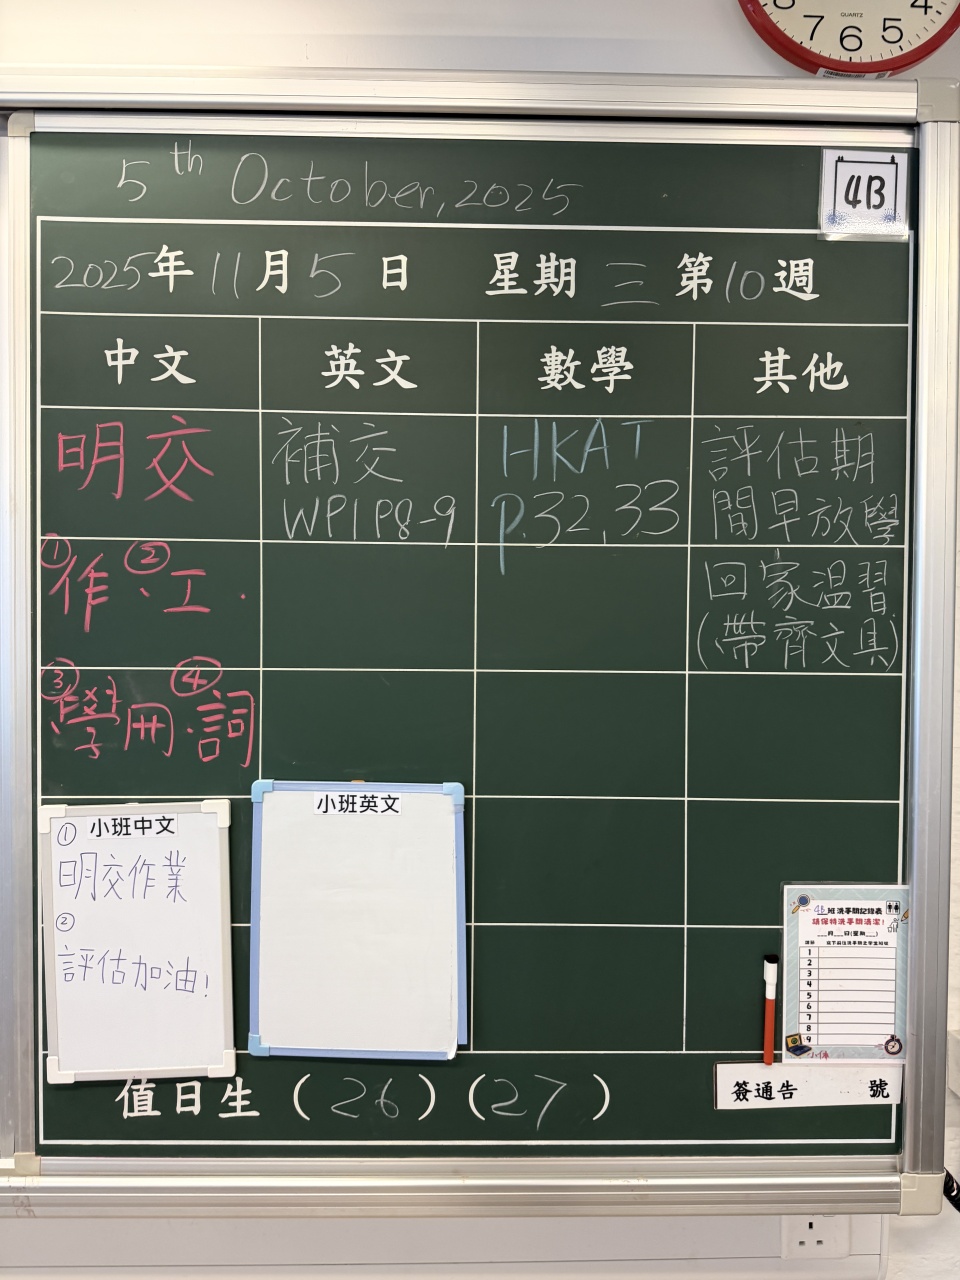 QUARTZ
8 7 6 5 4
5th October, 2025
4B
2025年11月5日 星期三第10週
中文 英文 數學 其他
明交
①作 ②、工.
③學冊.④詞
補交
WP1 P8-9
HKAT
P.32,33
評估期
間早放學
回家溫習
(帶齊文具)
小班中文
①
明交作業
②
評估加油!
小班英文
4B班洗手間記錄表
請保持洗手間清潔!
__月__日(星期__)
1
2
3
4
5
6
7
8
9
簽通告 號
值日生 (26) (27)